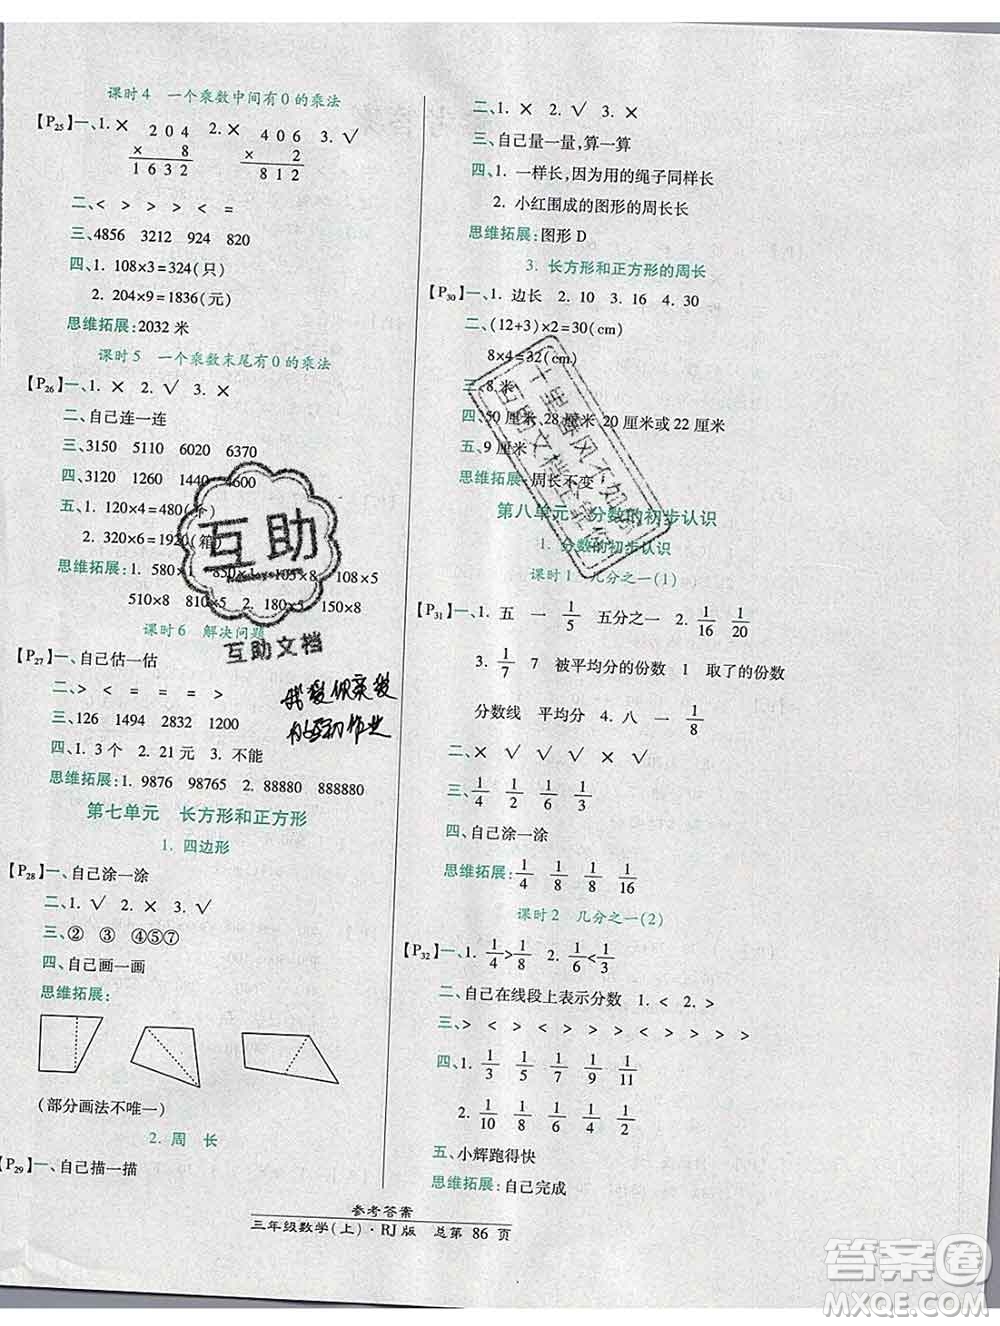 课时4 一个乘数中间有0的乘法
【P25】一、1. × 2. × 3. √
204
× 8
1632
406
× 2
812
二、< > > < =
三、4856 3212 924 820
四、1. 108×3=324(只)
2. 204×9=1836(元)
思维拓展:2032 米
课时5 一个乘数末尾有0的乘法
【P26】一、1. × 2. √ 3. ×
二、自己连一连
三、3150 5110 6020 6370
四、3120 1260 1440 4600
五、1. 120×4=480(个)
2. 320×6=1920(箱)
思维拓展:1. 580×1 850×1 105×8 108×5
510×8 810×5 2. 180×5 150×8
课时6 解决问题
【P27】一、自己估一估
二、> < = = = >
三、126 1494 2832 1200
四、1. 3个 2. 21元 3. 不能
思维拓展:1. 9876 98765 2. 88880 888880
第七单元 长方形和正方形
1. 四边形
【P28】一、自己涂一涂
二、1. √ 2. × 3. √
三、② ③ ④⑤⑦
四、自己画一画
思维拓展:
(部分画法不唯一)
2. 周 长
【P29】一、自己描一描
二、1. × 2. √ 3. ×
三、自己量一量,算一算
四、1. 一样长,因为用的绳子同样长
2. 小红围成的图形的周长长
思维拓展:图形 D
3. 长方形和正方形的周长
【P30】一、1. 边长 2. 10 3. 16 4. 30
二、(12+3)×2=30(cm)
8×4=32(cm)
三、8 米
四、50 厘米 28 厘米 20 厘米或 22 厘米
五、9 厘米
思维拓展:周长不变
第八单元 分数的初步认识
1. 分数的初步认识
课时1 几分之一(1)
【P31】一、1. 五 一 1/5 五分之一 2. 1/10 1/20
3. 1/7 7 被平均分的份数 1 取了的份数
分数线 平均分 4. 八 一 1/8
二、× √ √ √ ×
三、1/4 1/2 1/6 1/4
四、自己涂一涂
思维拓展:1/4 1/8 1/8 1/16
课时2 几分之一(2)
【P32】一、1. 1/4>1/8 2. 1/6<1/3
二、自己在线段上表示分数 1. < 2. >
三、> < < < > > > > > >
四、1. 1/3 1/5 1/7 1/9 1/11
2. 1/10 1/8 1/6 1/4 1/2
五、小辉跑得快
思维拓展:自己完成
参考答案
三年级数学(上)·RJ版 总第 86 页
互助
互助文档
答案圈
MXQE.COM